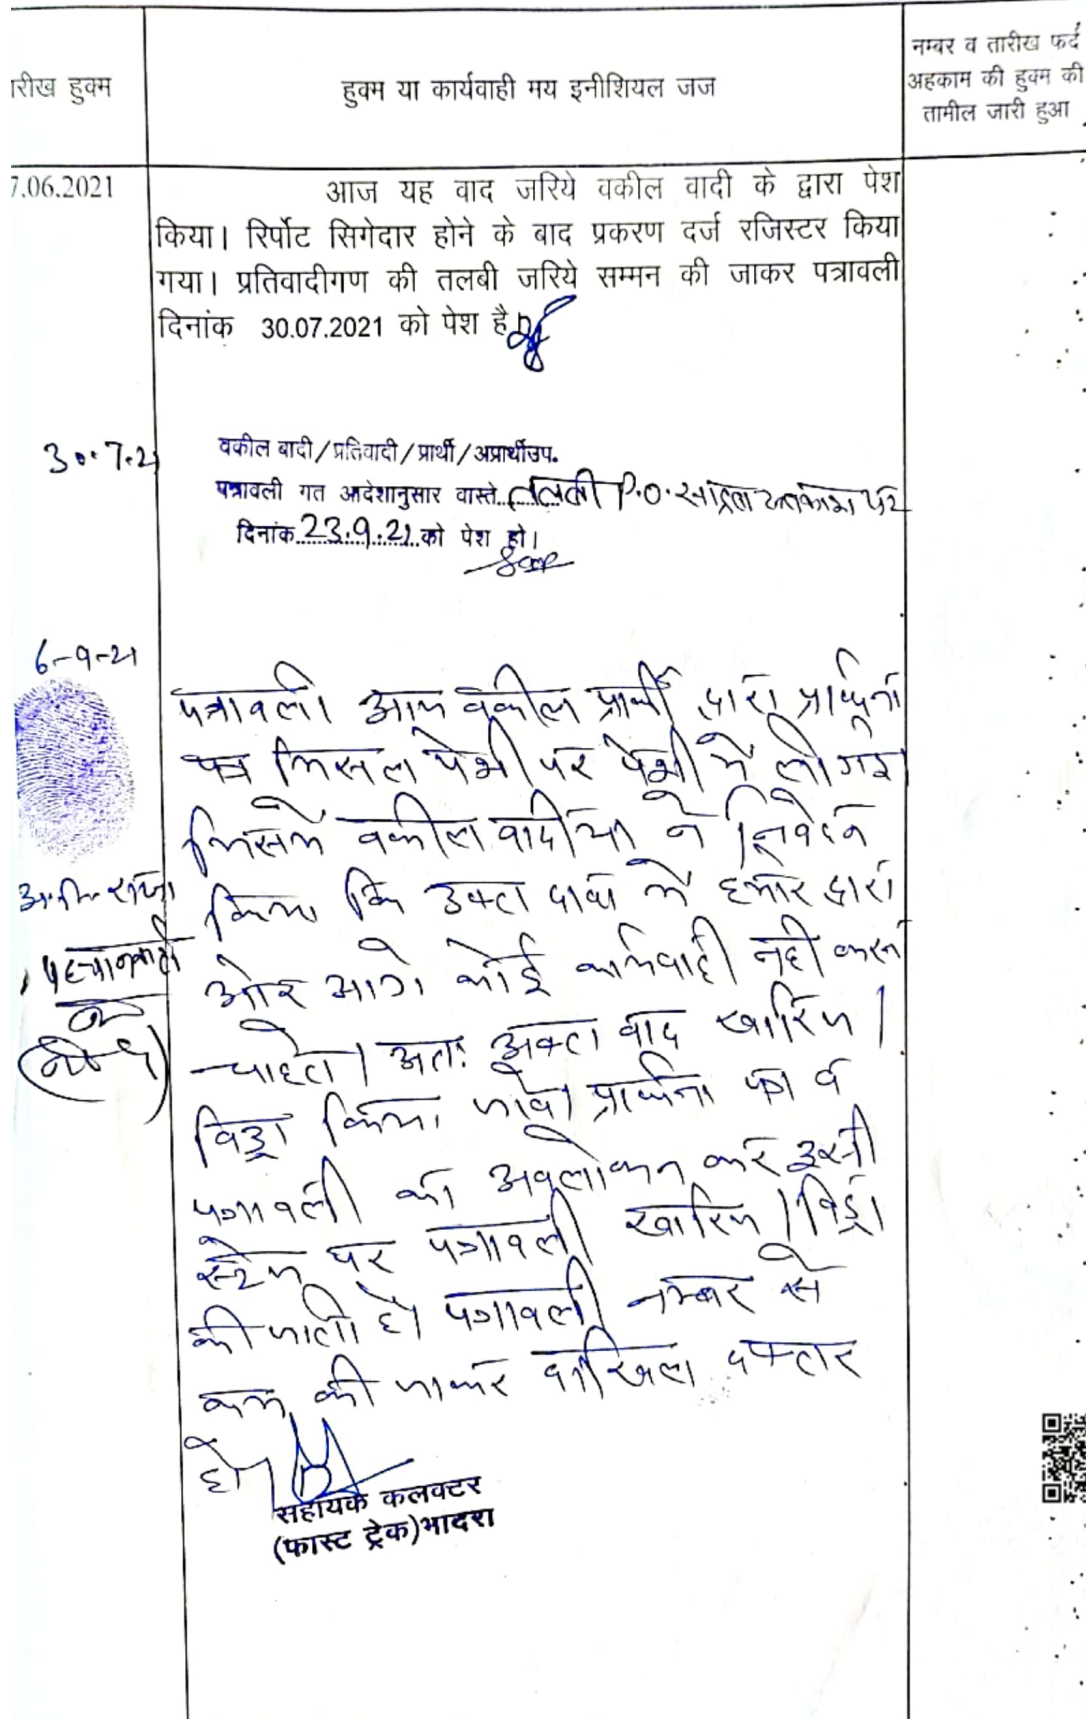 रीख हुक्म
हुक्म या कार्यवाही मय इनीशियल जज
नम्बर व तारीख फर्द
अहकाम की हुक्म की
तामील जारी हुआ
7.06.2021
आज यह वाद जरिये वकील वादी के द्वारा पेश
किया। रिर्पोट सिगेदार होने के बाद प्रकरण दर्ज रजिस्टर किया
गया। प्रतिवादीगण की तलबी जरिये सम्मन की जाकर पत्रावली
दिनांक 30.07.2021 को पेश है।
30.7.21
वकील बादी/प्रतिवादी/प्रार्थी/अप्रार्थीउप.
पत्रावली गत आदेशानुसार वास्ते तलबी P.O.
दिनांक 23.9.21 को पेश हो।
6-9-21
पत्रावली आज वकील प्रार्थी द्वारा प्रार्थना
पत्र मिसल पेशी पर पेशी में ली गई
जिसमें वकील वादीया ने निवेदन
किया कि उक्त दावा में हमारे द्वारा
ओर आगे कोई कार्यवाही नही करना
चाहते। अतः उक्त वाद खारिज/
विड्रा किया जावे। प्रार्थना पत्र व
पत्रावली का अवलोकन कर इसी
स्टेज पर पत्रावली खारिज/विड्रा
की जाती है। पत्रावली नम्बर से
कम की जाकर दाखिल दफ्तर
हो।
सहायक कलक्टर
(फास्ट ट्रेक) भादरा